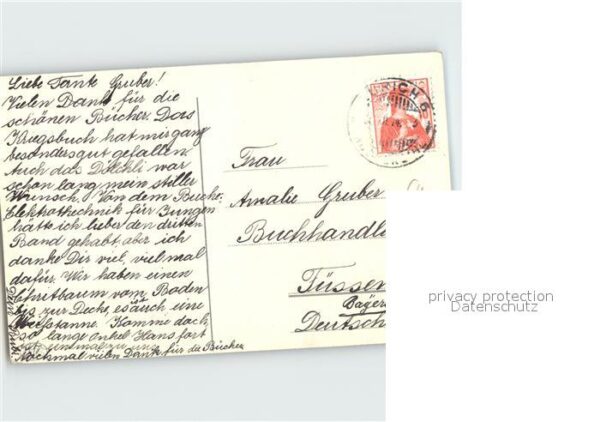 Liebe Tante Gruber!
Vielen Dank für die
schönen Bücher. Das
Kriegsbuch hat mir ganz
besonders gut gefallen.
Auch das Dölchli war
schon lang mein stiller
Wunsch. Von dem Buche:
Elektrothechnik für Jungen
hätte ich lieber den dritten
Band gehabt, aber ich
danke Dir viel, viel mal
dafür. Wir haben einen
Christbaum vom Boden
bis zur Decke, es ist auch eine
Weisstanne. Komme doch
so lange onkel Hans fort
ist einmal zu uns
Nochmal vielen Dank für die Bücher
RICH 6
Frau
Amalie Gruber
Buchhandl
Füssen
Bayer
Deutsch
privacy protection
Datenschutz